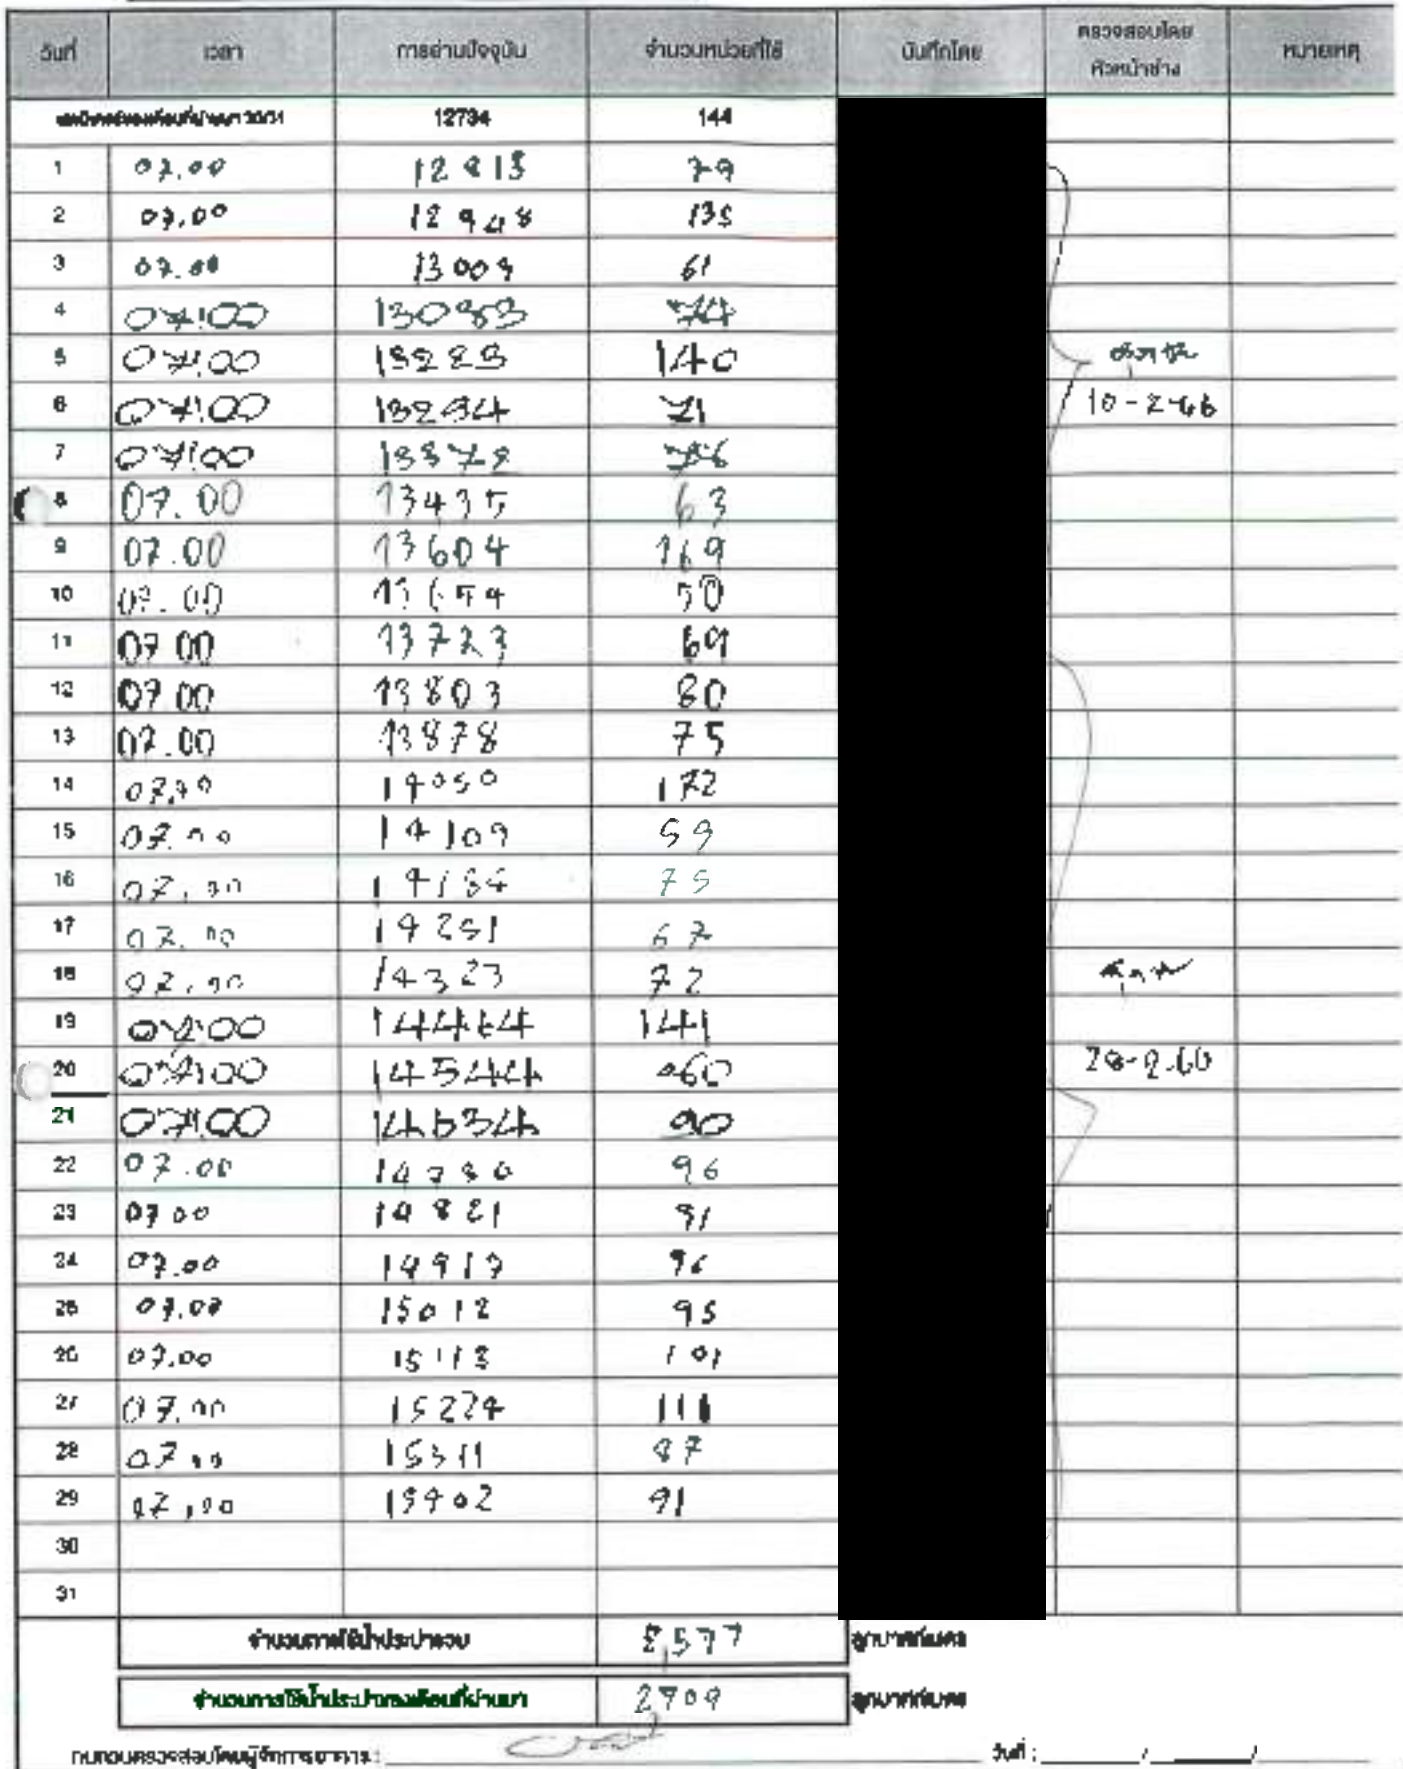 วันที่ เวลา การอ่านปัจจุบัน จำนวนหน่วยที่ใช้ บันทึกโดย ตรวจสอบโดยหัวหน้าช่าง หมายเหตุ
เลขมิเตอร์ของเดือนที่ผ่านมา 30/31 12734 144
1 07.00 12813 79
2 07.00 12948 135
3 07.00 13009 61
4 07:00 13083 74
5 07:00 13223 140
6 07:00 13294 71
10-2-66
7 07:00 13372 76
8 07.00 13435 63
9 07.00 13604 169
10 07.00 13654 50
11 07 00 13723 69
12 07 00 13803 80
13 07.00 13878 75
14 07.00 14050 172
15 07.00 14109 59
16 07.00 14184 75
17 07.00 14251 67
18 07.00 14323 72
19 07:00 14464 141
20 07:00 14544 060
28-2-60
21 07:00 14634 90
22 07.00 14730 96
23 07 00 14821 91
24 07.00 14917 96
25 07.00 15012 95
26 07.00 15113 101
27 07.00 15224 111
28 07.00 15311 87
29 07.00 15402 91
30
31
จำนวนการใช้น้ำประปารวม 2,577 ลูกบาศก์เมตร
จำนวนการใช้น้ำประปาของเดือนที่ผ่านมา 2709 ลูกบาศก์เมตร
ทบทวนตรวจสอบโดยผู้จัดการอาคาร : วันที่ : / /